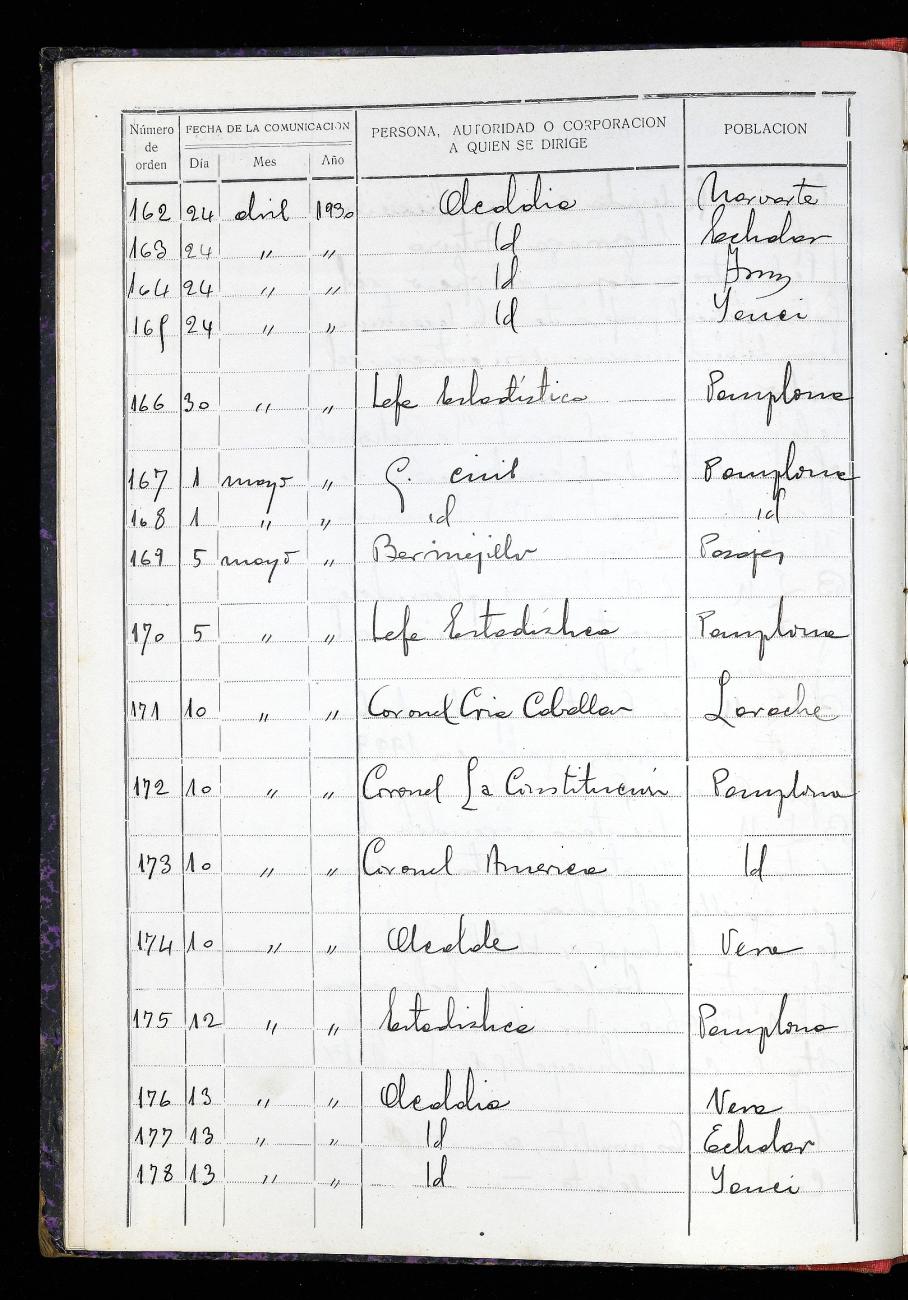 Número de orden FECHA DE LA COMUNICACION PERSONA, AUTORIDAD O CORPORACION A QUIEN SE DIRIGE POBLACION
Día Mes Año
162 24 abril 1930 Alcaldia Narvarte
163 24 " " Id Echalar
164 24 " " Id
165 24 " " Id Yanci
166 30 " " Jefe Estadística Pamplona
167 1 mayo " G. civil Pamplona
168 1 " " id id
169 5 mayo " Bermejillo Pasajes
170 5 " " Jefe Estadística Pamplona
171 10 " " Coronel Cria Caballar Larache
172 10 " " Coronel La Constitución Pamplona
173 10 " " Coronel America Id
174 10 " " Alcalde Vera
175 12 " " Estadistica Pamplona
176 13 " " Alcaldia Vera
177 13 " " Id Echalar
178 13 " " Id Yanci